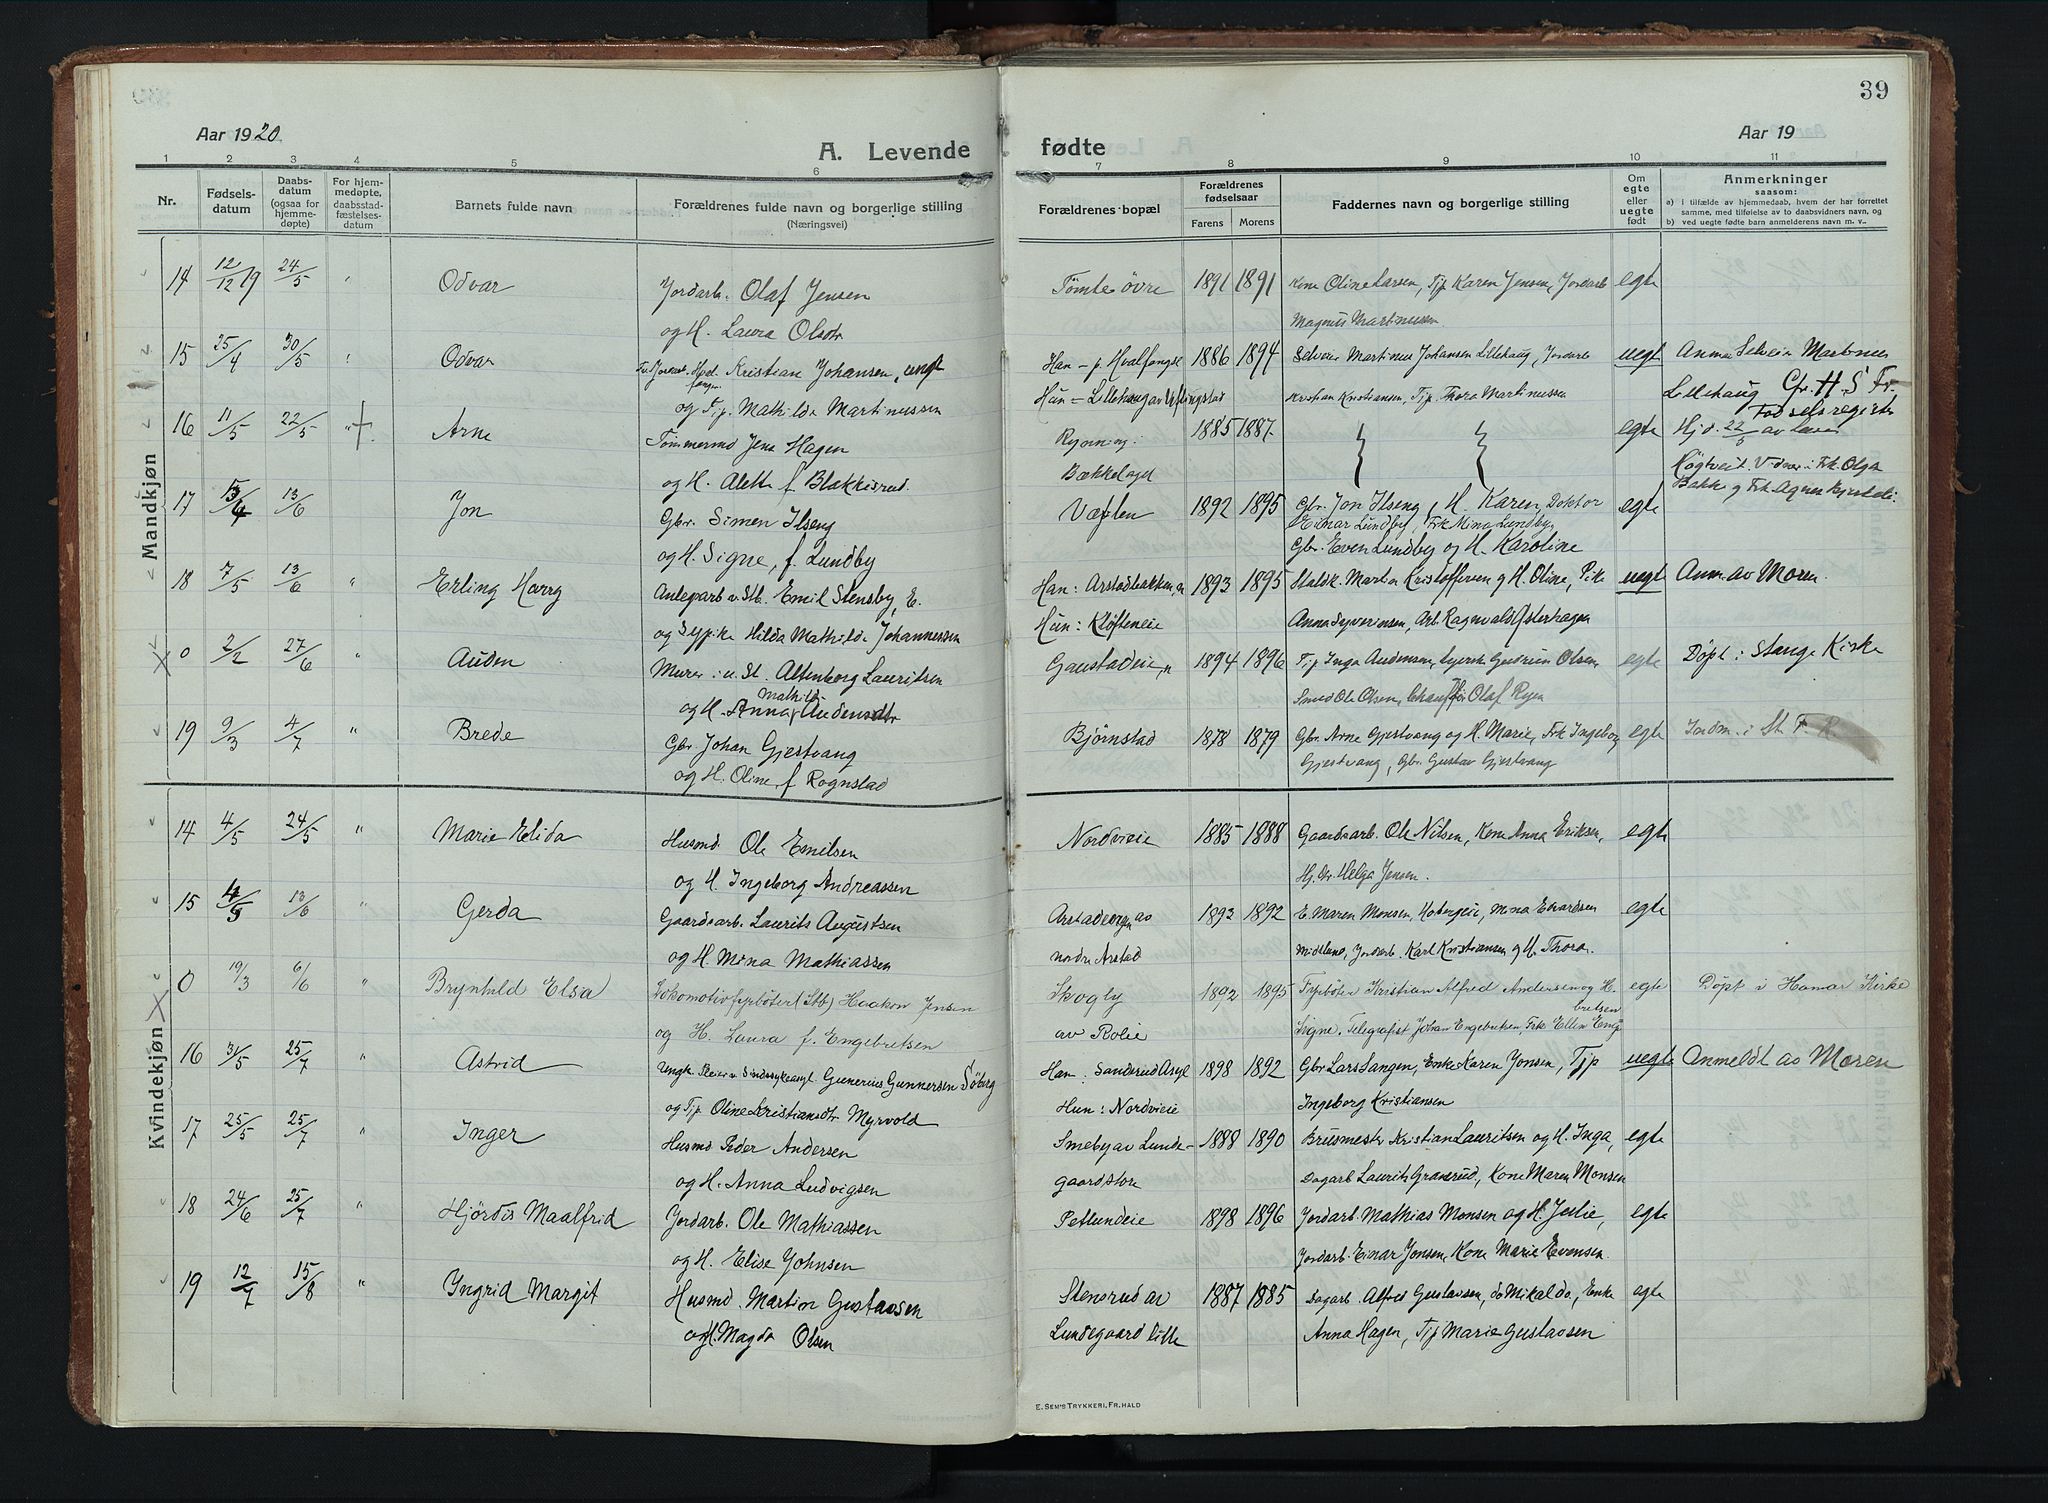 39
Aar 1920
A. Levende fødte
Aar 19
1 2 3 4 5 6 7 8 9 10 11
Nr.
Fødsels-
datum
Daabs-
datum
(ogsaa for
hjemme-
døpte)
For hjem-
medøpte,
daabsstad-
fæstelses-
datum
Barnets fulde navn
Forældrenes fulde navn og borgerlige stilling
(Næringsvei)
Forældrenes bopæl
Forældrenes
fødselsaar
Farens Morens
Faddernes navn og borgerlige stilling
Om
egte
eller
uegte
født
Anmerkninger
saasom:
a) i tilfælde av hjemmedaab, hvem der har forrettet
samme, med tilføielse av to daabsvidners navn, og
b) ved uegte fødte barn anmelderens navn m. v..
Mandkjøn
14 12/12 19 24/5 " Odvar Jordarb. Olaf Jensen Tømte øvre 1891 1891 Kone Oline Larsen, Tjp Karen Jensen, Jordarb egte
og H. Laura Olsdtr Magnus Martinussen
15 25/4 30/5 " Odvar Kristian Johansen, ungk Han - p. Hvalfangst 1886 1894 Selveier Martinus Johansen Lillehaug, Jordarb uegt Anm. Selveier Martinus
og Tjp. Mathilde Martinussen Hun - Lillehaug av Kristian Kristiansen, Tjp. Thora Martinussen Lillehaug Cfr. H. S Fr.
Fødselsregister
16 11/5 22/5 " Arne Tømmermd Jens Hagen Ryenning 1885 1887 egte Hjd. 22/5 av Lærer
og H. Alette f. Blakkisrud Bækkelaget Høgtveit. Vidner: Frk. Olga
Bakke og Frk. Agnes
17 13/6 " Jon Gbr. Simen Ilseng Væflen 1892 1895 Gbr. Jon Ilseng, H. Karen, Doktor egte
Einar Lundby, Frk Mina Lundby,
og H. Signe, f. Lundby Gbr. Even Lundby og H. Karoline
18 7/5 13/6 " Erling Harry Anlegsarb v. Stb. Emil Stensby, E. Han: Arstadbakken, 1893 1895 Staldk. Martin Kristoffersen og H. Oline, Pike uegt Anm. av Moren.
og Sypike Hilda Mathilde Johannessen Hun: Kløfteneie Anna Syverinsen, Arb. Ragnvald Østerhagen
0 2/2 27/6 " Auden Murer i u. St. Altenborg Lauritsen Gaustadeie, n 1894 1896 Tjp Inga Audensen, Gudrun Olsen, egte Døpt i Stange Kirke
og H. Anna Mathilde Audensdtr Smed Ole Olsen, Chauffør Olaf Ryen
19 9/3 4/7 " Brede Gbr Johan Gjestvang Bjørnstad 1878 1879 Gbr. Arne Gjestvang og H. Marie, Frk Ingeborg egte Indm. i St. F. R.
og H. Oline f Rognstad Gjestvang, Gbr. Gustav Gjestvang
Kvindekjøn
14 4/5 24/5 " Marie Elida Husmd Ole Emilsen Nordvieie 1885 1888 Gaardsarb. Ole Nilsen, Kone Anna Eriksen, egte
og H. Ingeborg Andreassen Helga Jensen.
15 13/6 " Gerda Gaardsarb. Laurits Augustsen av 1893 1892 E. Maren Monsen, Hobergeie, Mina Edvardsen egte
og H. Mina Mathiassen nordre Arstad Midtlund, Jordarb. Karl Kristiansen og H. Thora.
0 19/3 6/6 " Brynhild Elsa Lokomotivfyrbøter (Stb) Haakon Jensen Skogly 1892 1895 Fyrbøter Kristian Alfred Andersen og H. egte Døpt i Hamar Kirke
og H. Laura f. Engebretsen av Rolie Signe. Telegrafist Johan Engebretsen, Frk Ellen Engebretsen
16 31/5 25/7 " Astrid Ungk. Pleier v. Sindssykeasyl. Gunerius Gunnersen Søberg Han: Sanderud Asyl 1898 1892 Gbr Lars Langen, Enke Karen Jonsen, Tjp uegte Anmeldt av Moren
og Tjp Oline Kristiansdtr Myrvold Hun: Nordvieie Ingeborg Kristiansen
17 25/5 25/7 " Inger Husmd Peder Andersen Smeby av Lunde- 1888 1890 Brusmester Kristian Lauritsen og H. Inga, egte
og H. Anna Ludvigsen gaardstore Dagarb Laurits Granerud, Kone Maren Monsen
18 24/6 25/7 " Hjørdis Maalfrid Jordarb. Ole Mathiassen Petlundeie 1898 1896 Jordarb. Mathias Monsen og H. Julie, egte
og H. Elise Johnsen Jordarb. Einar Jonsen, Kone Marie Evensen.
19 12/7 15/8 " Ingrid Margit Husmd. Martin Gustavsen Stensrud av 1887 1885 Dagarb. Alfred Gustavsen, do Mikal do., Enke egte
og H. Magda Olsen Lundegaard lille Anna Hagen, Tjp Marie Gustavsen
E. SEM'S TRYKKERI, FR.HALD